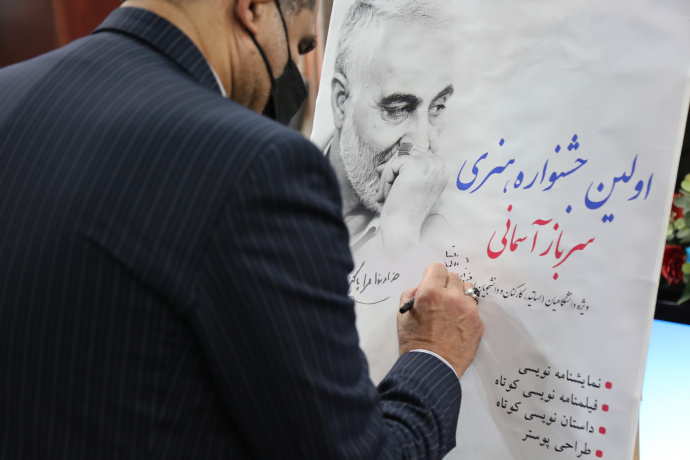 اولین جشنواره هنری
سرباز آسمانی
ویژه دانشگاهیان (اساتید، کارکنان و دانشجویان
نمایشنامه نویسی
فیلمنامه نویسی کوتاه
داستان نویسی کوتاه
طراحی پوستر